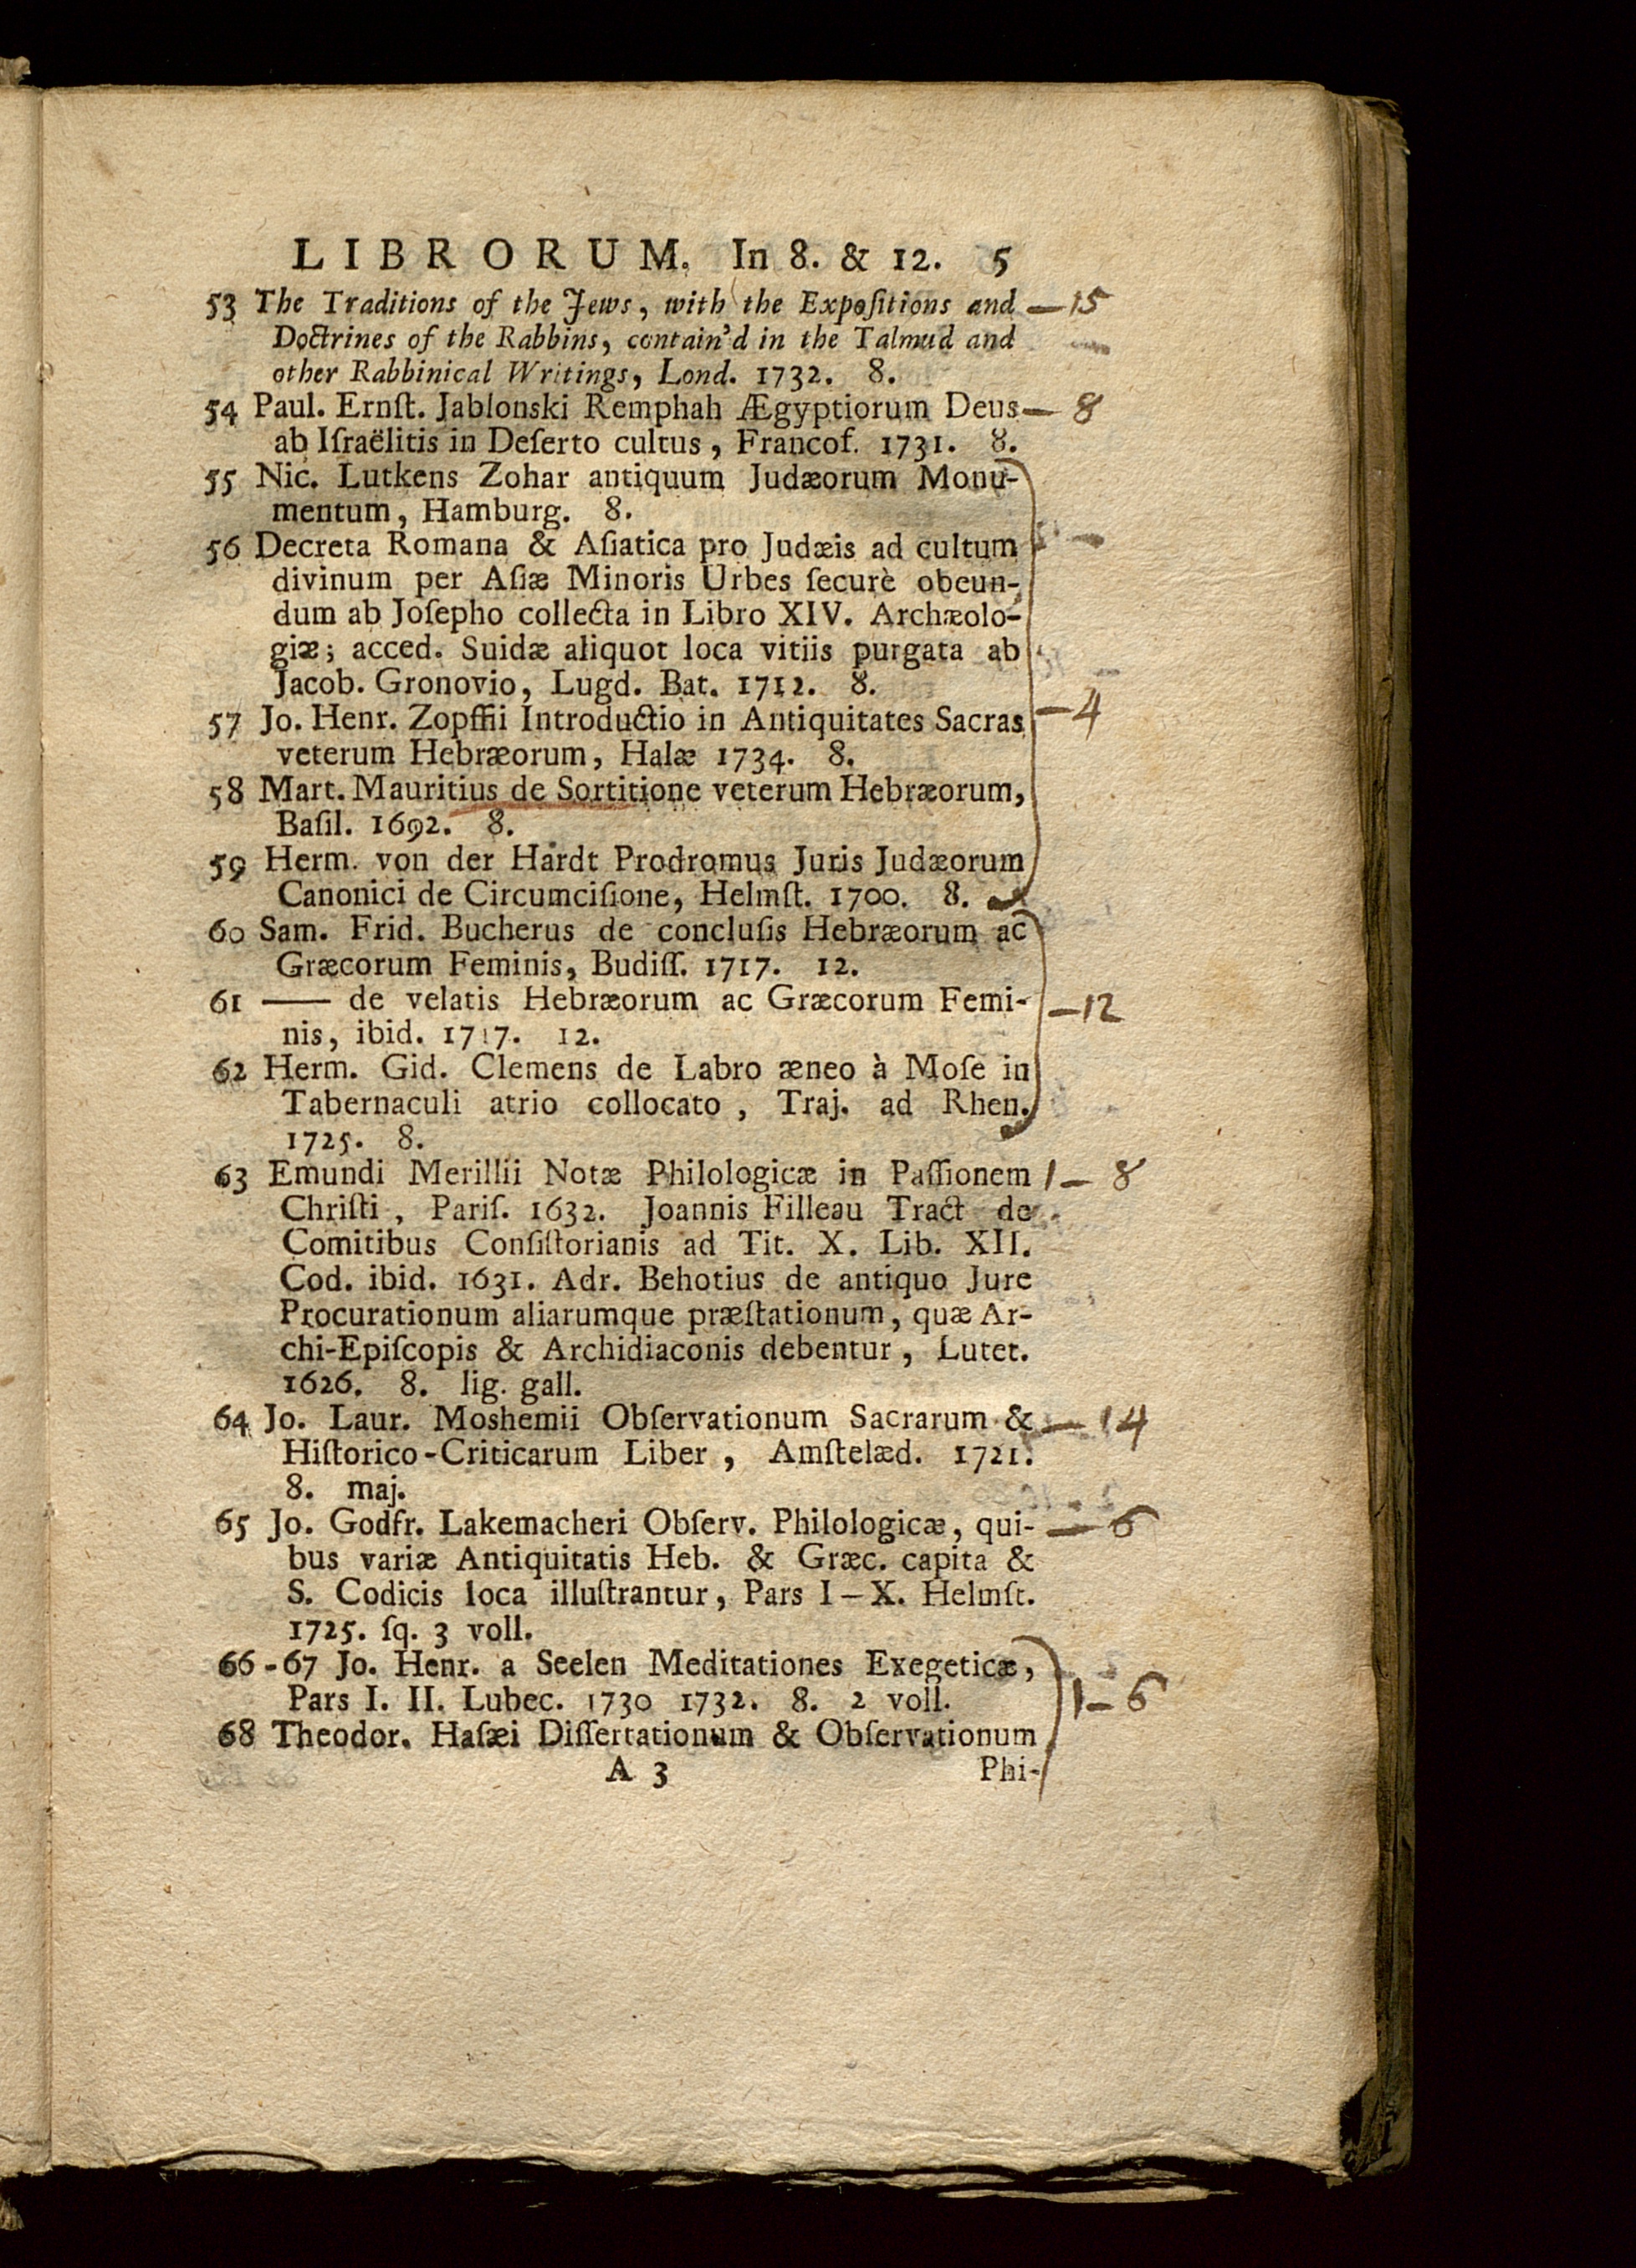 LIBRORUM. In 8. & 12. 5
53 The Traditions of the Jews, with the Expoſitions and —15
Doctrines of the Rabbins, contain'd in the Talmud and
other Rabbinical Writings, Lond. 1732. 8.
54 Paul. Ernſt. Jablonski Remphah Ægyptiorum Deus — 8
ab Iſraëlitis in Deſerto cultus, Francof. 1731. 8.
55 Nic. Lutkens Zohar antiquum Judæorum Monu-
mentum, Hamburg. 8.
56 Decreta Romana & Aſiatica pro Judæis ad cultum
divinum per Aſiæ Minoris Urbes ſecurè obeun-
dum ab Joſepho collecta in Libro XIV. Archæolo-
giæ; acced. Suidæ aliquot loca vitiis purgata ab
Jacob. Gronovio, Lugd. Bat. 1712. 8.
57 Jo. Henr. Zopffii Introductio in Antiquitates Sacras —4
veterum Hebræorum, Halæ 1734. 8.
58 Mart. Mauritius de Sortitione veterum Hebræorum,
Baſil. 1692. 8.
59 Herm. von der Hardt Prodromus Juris Judæorum
Canonici de Circumciſione, Helmſt. 1700. 8.
60 Sam. Frid. Bucherus de concluſis Hebræorum ac
Græcorum Feminis, Budiſſ. 1717. 12.
61 —— de velatis Hebræorum ac Græcorum Femi- —12
nis, ibid. 1717. 12.
62 Herm. Gid. Clemens de Labro æneo à Moſe in
Tabernaculi atrio collocato, Traj. ad Rhen.
1725. 8.
63 Emundi Merillii Notæ Philologicæ in Paſſionem 1— 8
Chriſti, Pariſ. 1632. Joannis Filleau Tract de
Comitibus Conſiſtorianis ad Tit. X. Lib. XII.
Cod. ibid. 1631. Adr. Behotius de antiquo Jure
Procurationum aliarumque præſtationum, quæ Ar-
chi-Epiſcopis & Archidiaconis debentur, Lutet.
1626. 8. lig. gall.
64 Jo. Laur. Moshemii Obſervationum Sacrarum & — 14
Hiſtorico-Criticarum Liber, Amſtelæd. 1721.
8. maj.
65 Jo. Godfr. Lakemacheri Obſerv. Philologicæ, qui- — 6
bus variæ Antiquitatis Heb. & Græc. capita &
S. Codicis loca illuſtrantur, Pars I–X. Helmſt.
1725. ſq. 3 voll.
66-67 Jo. Henr. a Seelen Meditationes Exegeticæ,
Pars I. II. Lubec. 1730 1732. 8. 2 voll. 1— 6
68 Theodor. Haſæi Diſſertationum & Obſervationum
A 3 Phi-